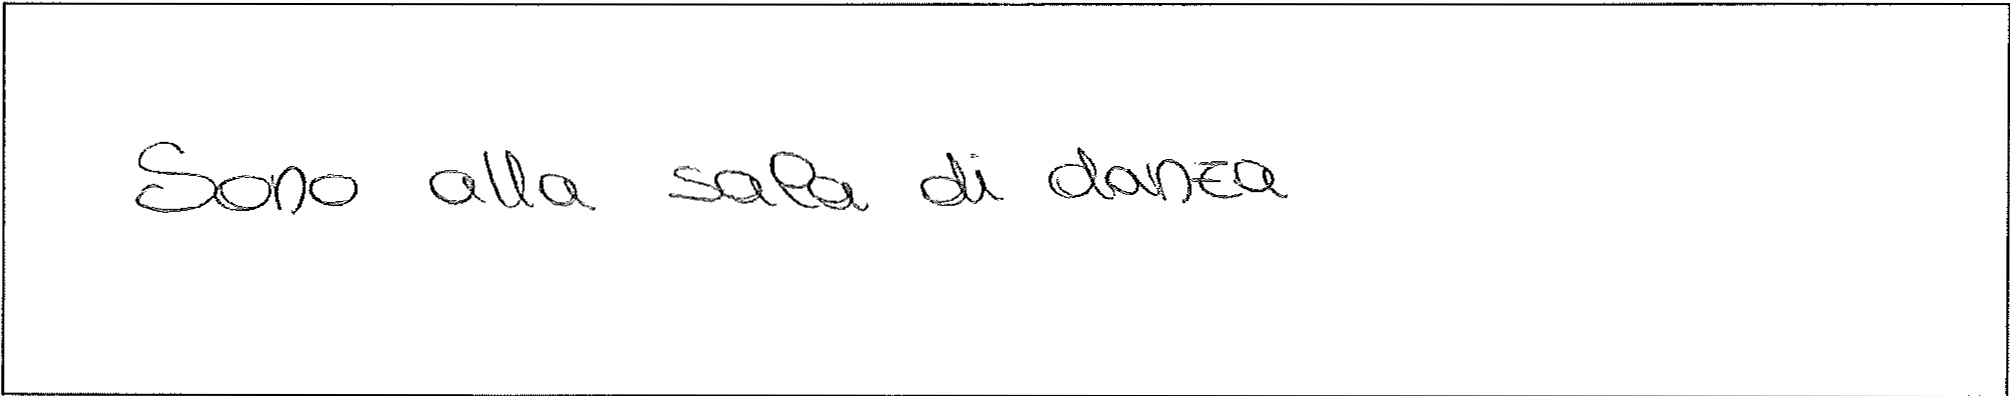 Sono alla sala di danza